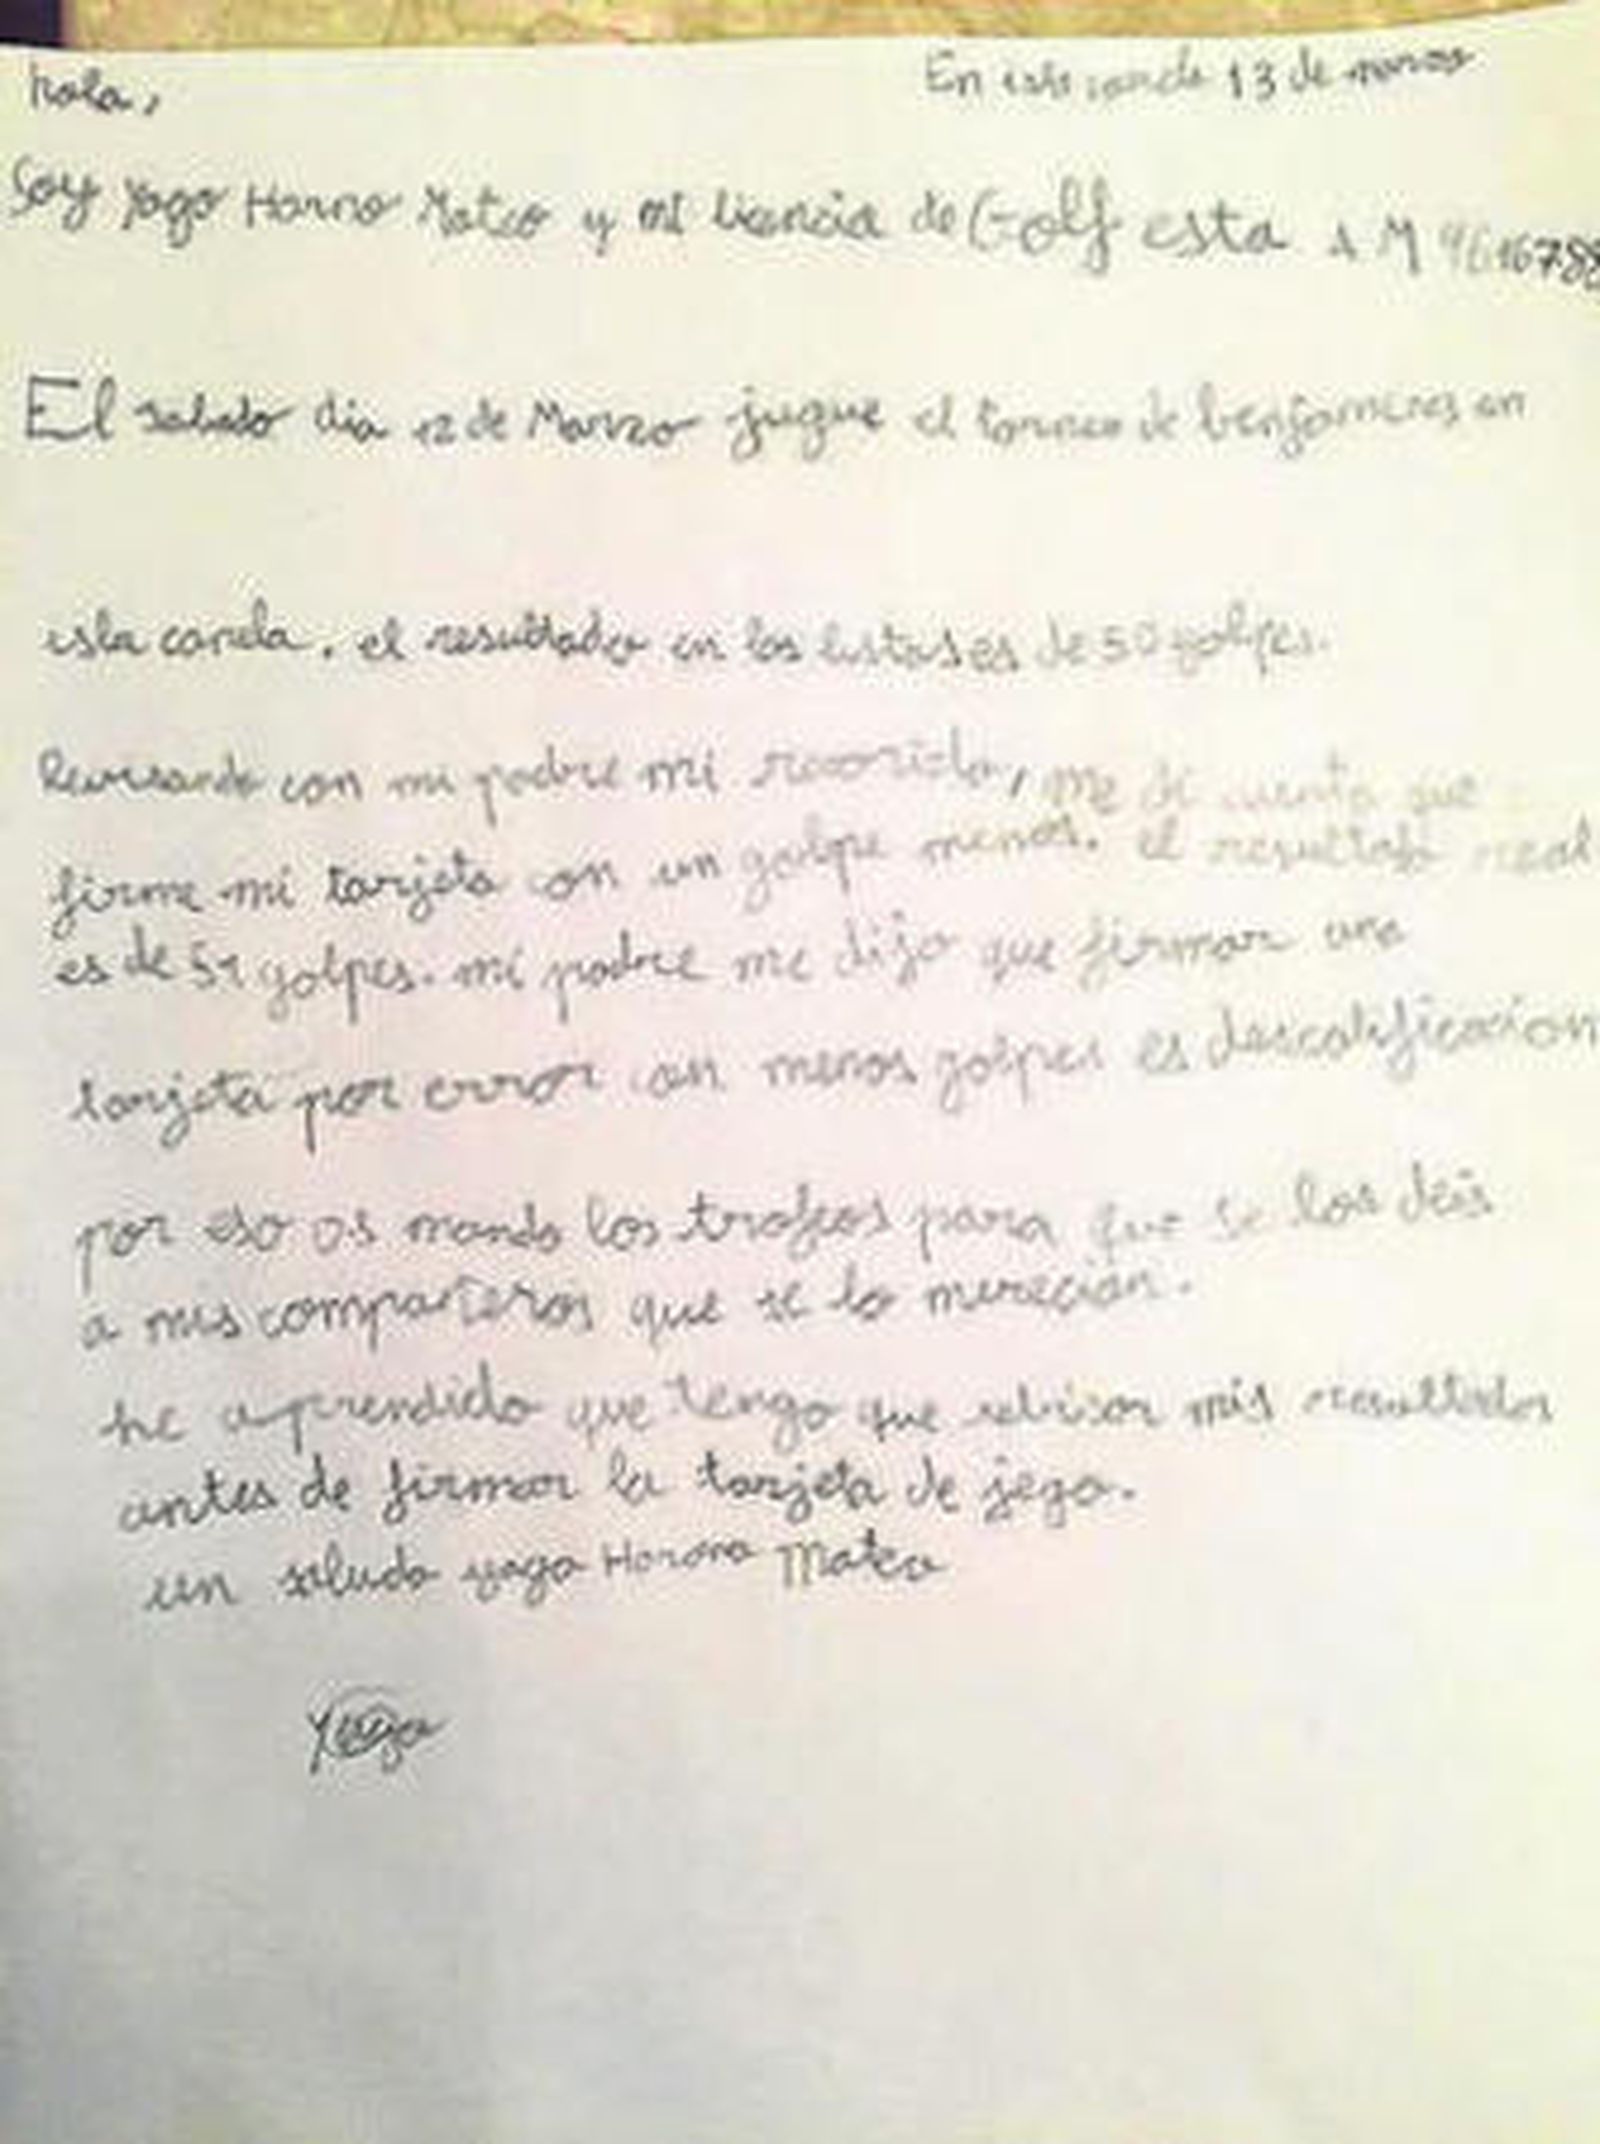 hola,
En isla canela 13 de marzo
Soy Yago Horno Mateo y mi licencia de Golf esta AM
El sabado dia 12 de Marzo jugue el torneo de benjamines en
isla canela. el resultado en las listas es de 50 golpes.
Revisando con mi padre mi recorrido, me di cuenta que
firme mi tarjeta con un golpe menos. el resultado real
es de 51 golpes. mi padre me dijo que firmar una
tarjeta por error con menos golpes es descalificacion
por eso os mando los trofeos para que se los deis
a mis compañeros que se lo merecian.
he aprendido que tengo que revisar mis resultados
antes de firmar la tarjeta de jego.
un saludo yago Mateo
Yago